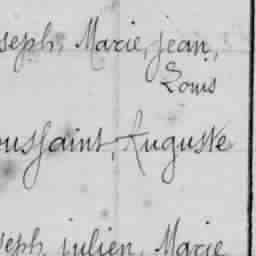 seph, Marie, jean,
Louis
oussaint, Auguste
seph, julien, Marie